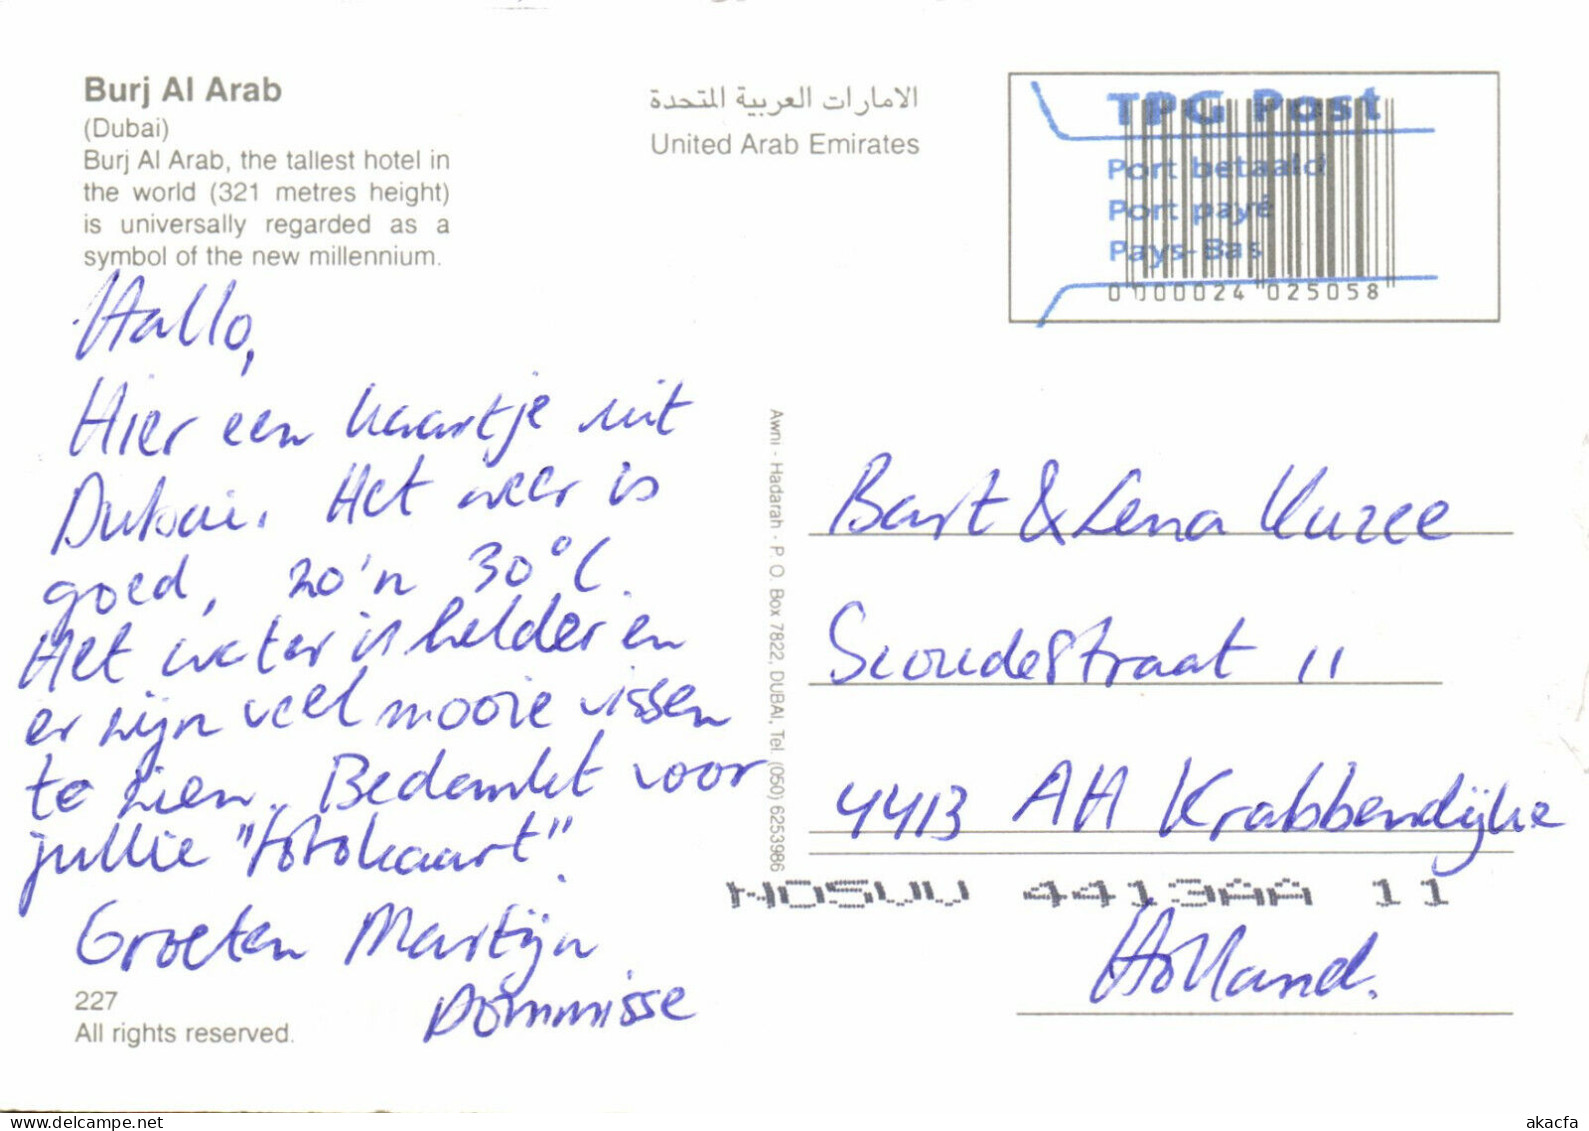 Burj Al Arab
(Dubai)
Burj Al Arab, the tallest hotel in
the world (321 metres height)
is universally regarded as a
symbol of the new millennium.
الامارات العربية المتحدة
United Arab Emirates
TPG Post
Port betaald
Port payé
Pays-Bas
0000024 025058
Hallo,
Hier een kaartje uit
Dubai. Het weer is
goed, zo'n 30°C.
Het water is helder en
er zijn veel mooie vissen
te zien. Bedankt voor
jullie "fotokaart".
Groeten Martijn
Dommisse
227
All rights reserved.
Awni - Hadarah - P. O. Box 7822, DUBAI, Tel. (050) 6253986
Bart & Lena Kuzee
straat 11
4413 AH Krabbendijke
NDSUU 4413AA 11
Holland.
www.delcampe.net
akacfa